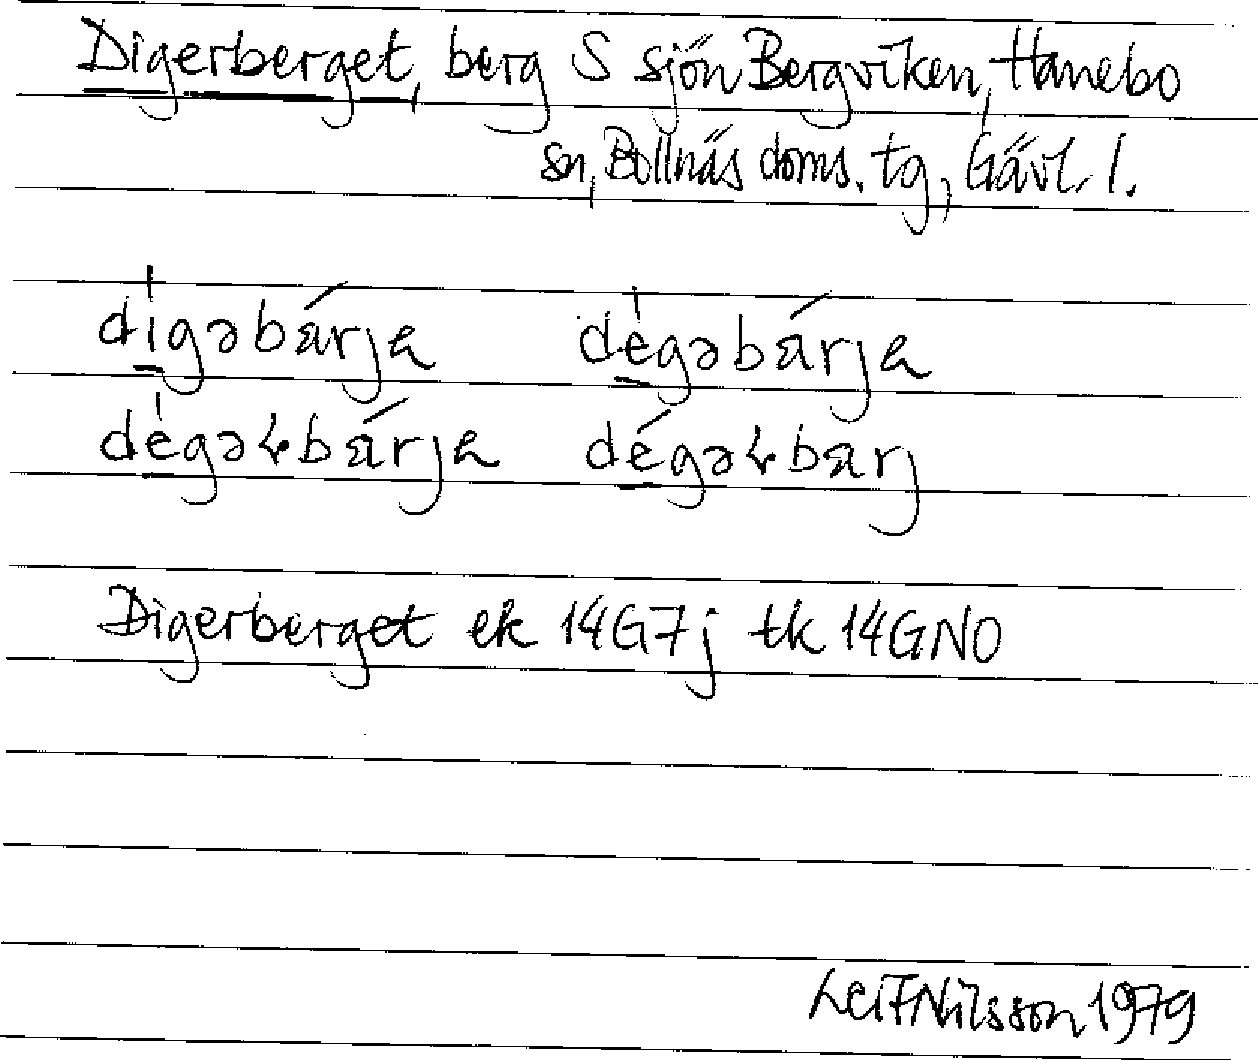 Digerberget, berg S sjön Bergviken, Hanebo
sn, Bollnäs doms. tg, Gävl. l.
dígəbárja dégəbárja
dégəɫbárja dégəɫbarj
Digerberget ek 14G7j tk 14GNO
Leif Nilsson 1979